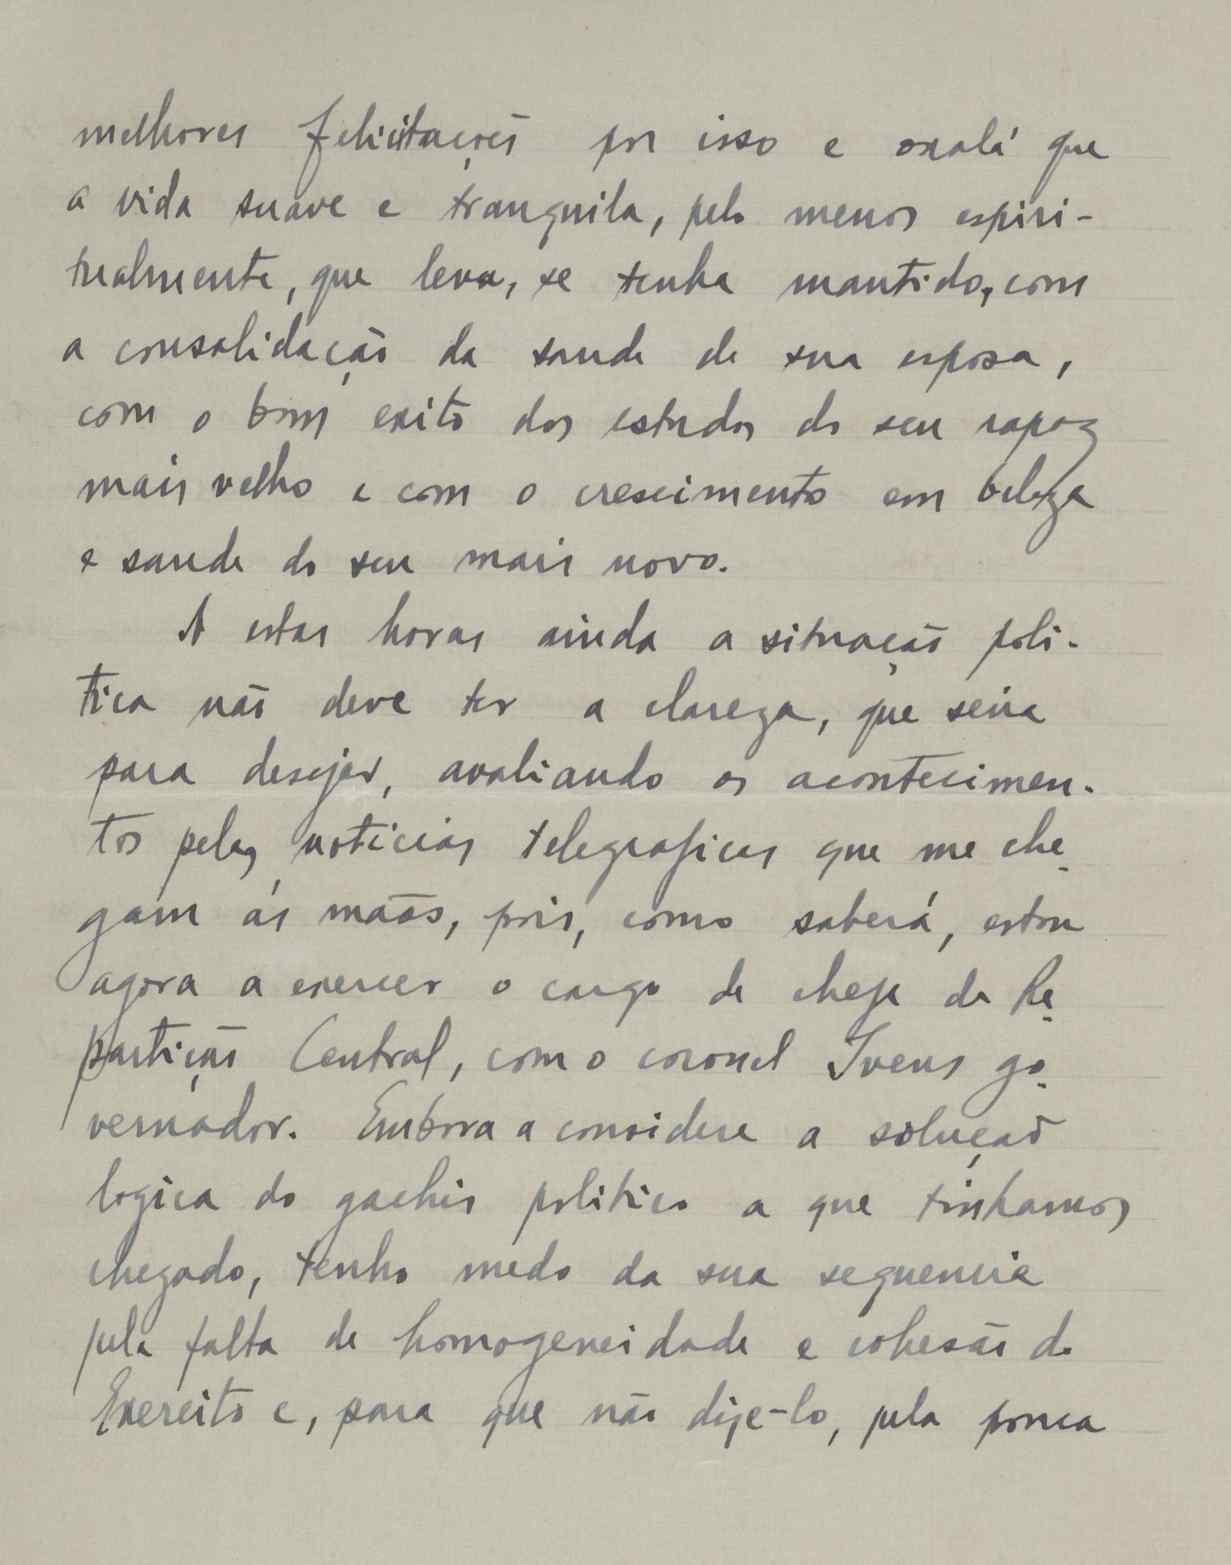 melhores felicitações por isso e oxalá que
a vida suave e tranquila, pelo menos espiri-
tualmente, que leva, se tenha mantido, com
a consolidação da saude de sua esposa,
com o bom exito dos estudos do seu rapaz
mais velho e com o crescimento em beleza
e saude do seu mais novo.
A estas horas ainda a situação poli-
tica não deve ter a clareza, que seria
para desejar, avaliando os acontecimen-
tos pelas noticias telegraficas que me che-
gam ás mãos, pois, como saberá, estou
agora a exercer o cargo de chefe da Re-
partição Central, com o coronel Ivens go-
vernador. Embora a considere a solução
logica do gachis politico a que tinhamos
chegado, tenho medo da sua sequencia
pela falta de homogeneidade e cohesão do
Exercito e, para que não dize-lo, pela pouca